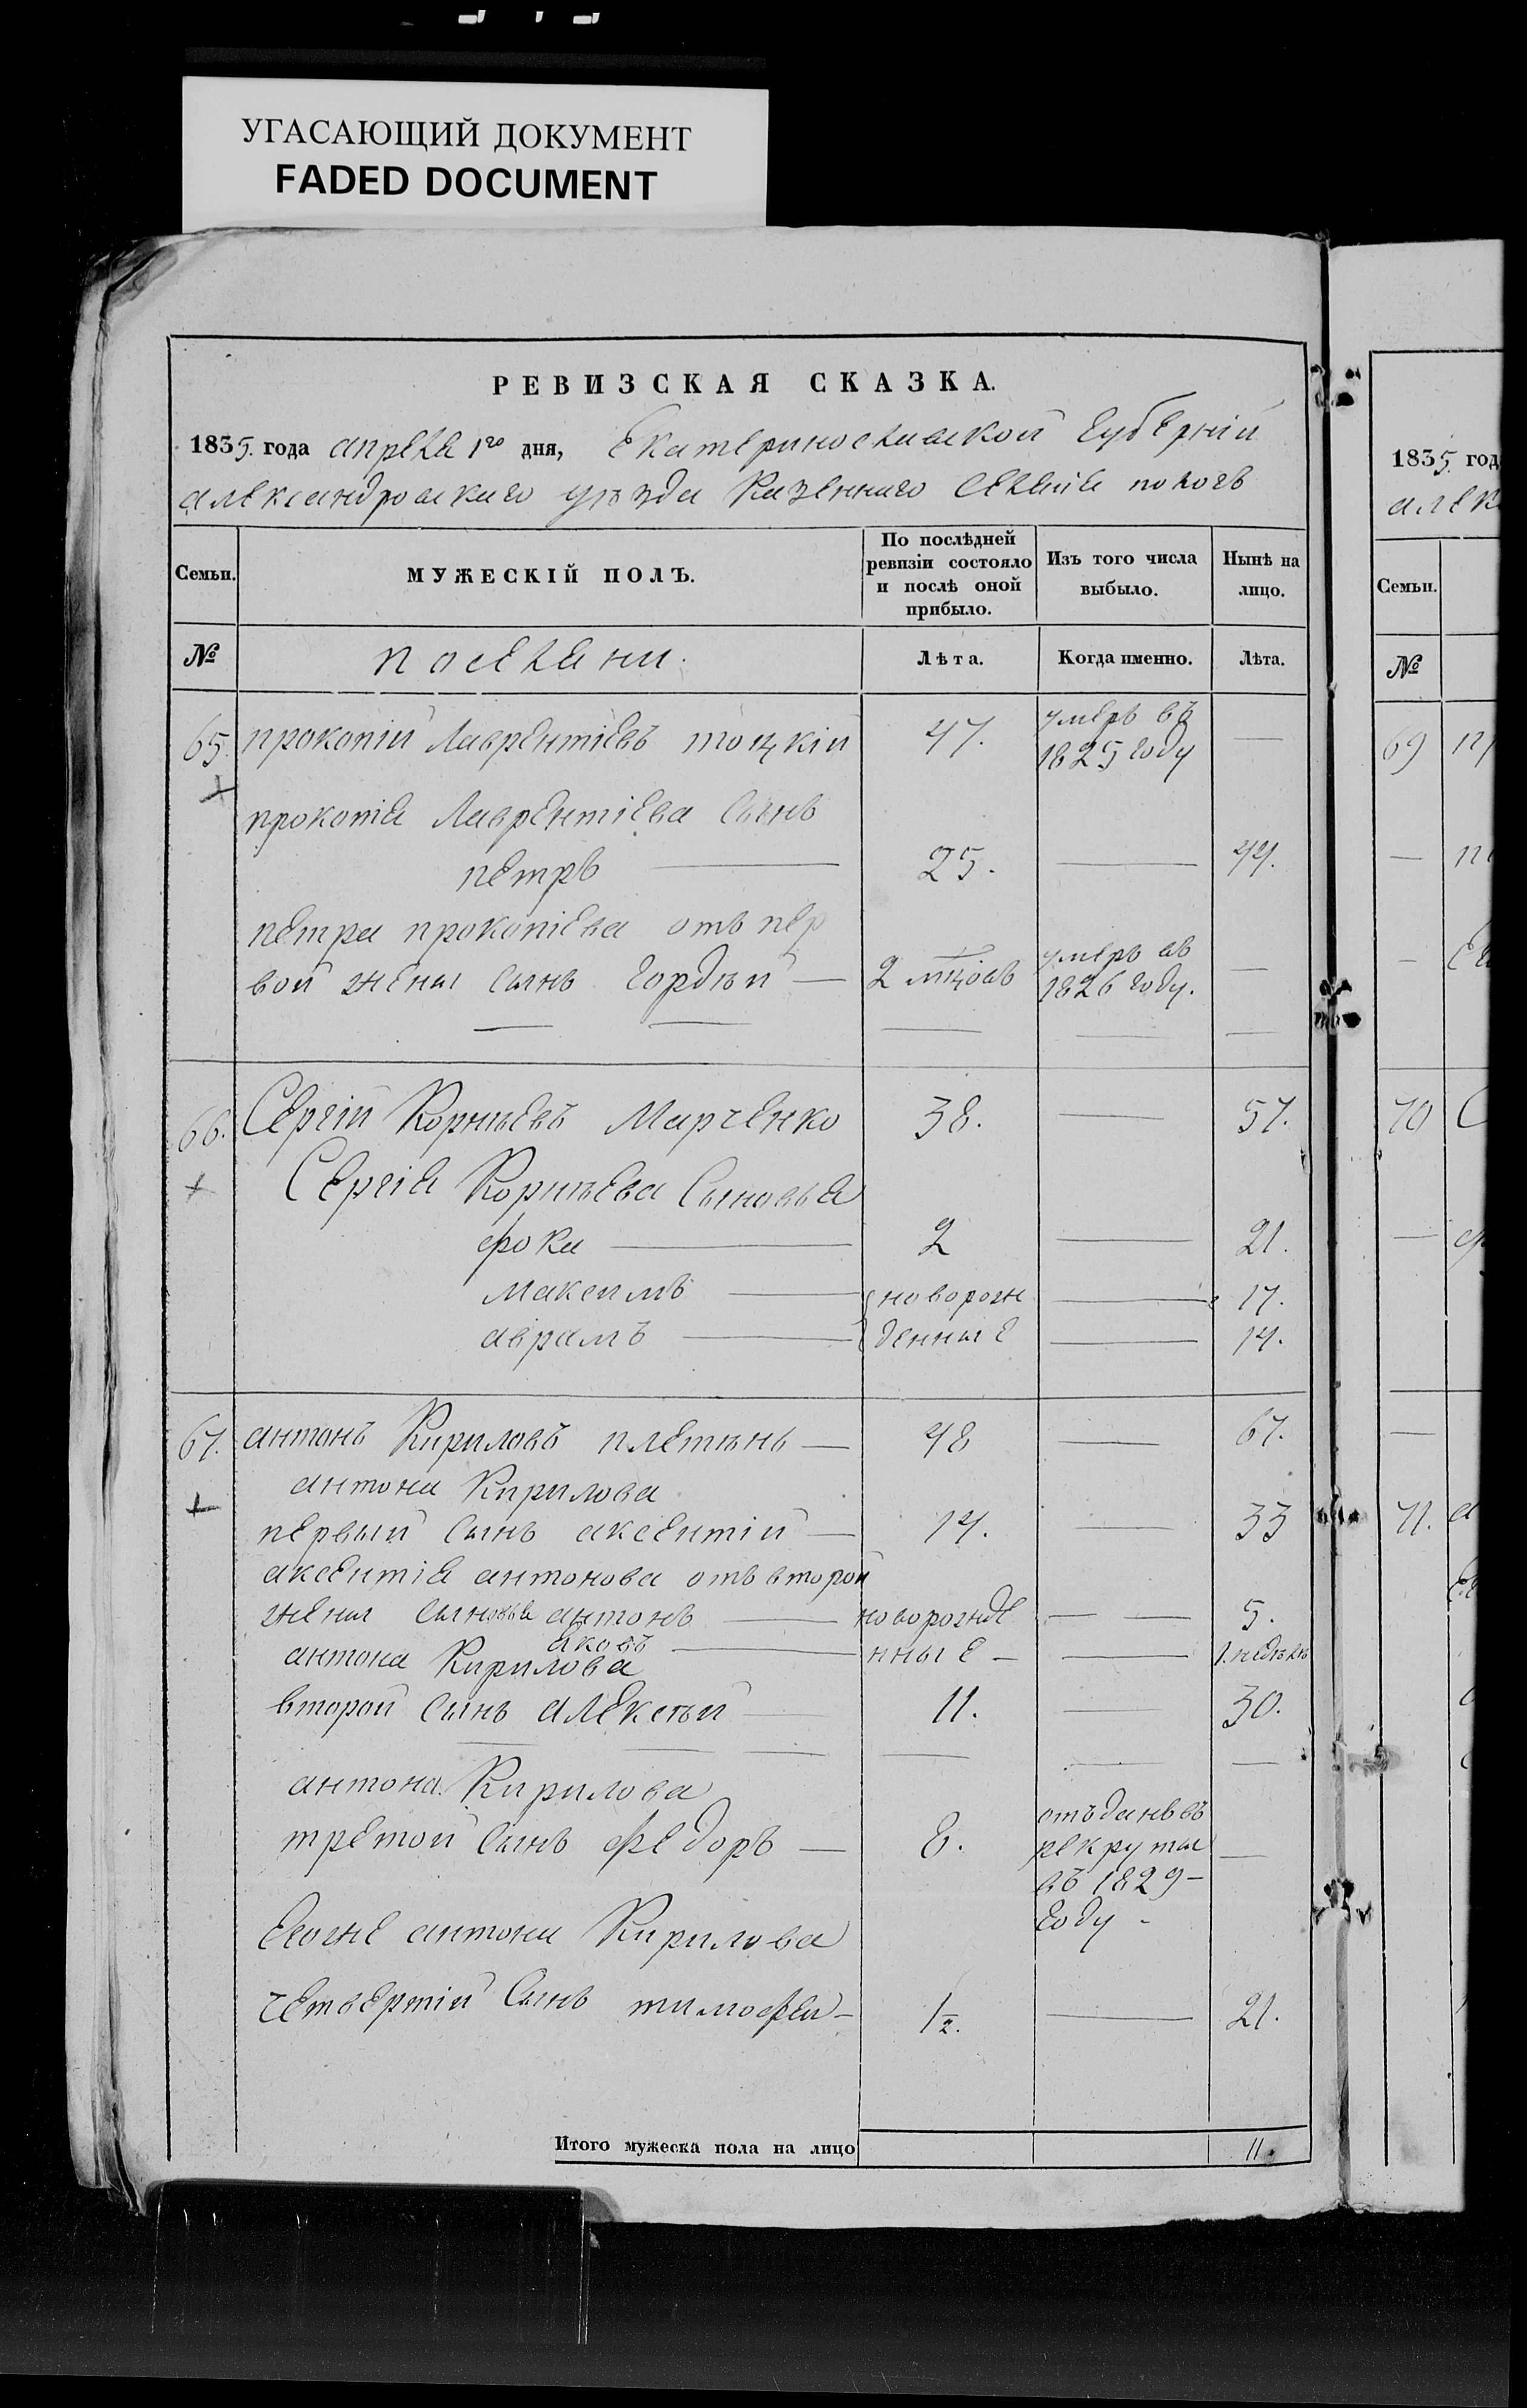 УГАСАЮЩИЙ ДОКУМЕНТ
FADED DOCUMENT
РЕВИЗСКАЯ СКАЗКА.
1835. года апреля 1го дня, Екатеринославской Губернїи
александровскаго уѣзда Казеннаго Селенія пологъ
Семьи. МУЖЕСКІЙ ПОЛЪ. По послѣдней ревизіи состояло и послѣ оной прибыло. Изъ того числа выбыло. Нынѣ на лицо.
№ поселяни. Лѣта. Когда именно. Лѣта.
65. прокопій Лаврентіевъ тоцкій 47. умеръ въ 1825 году —
прокопія Лаврентіева Сынъ
петръ — 25. — 44.
петра прокопіева отъ пер
вой жены Сынъ Гордѣй — 2 мцовъ умеръ въ 1826 году. —
66. Сергій Корнѣевъ Марченко 38. — 57.
Сергія Корнѣева Сыновья
фока — 2 — 21.
максимъ — новорож — 17.
аврамъ — денные — 14.
67. антонъ Кириловъ плетѣнь — 48 — 67.
антона Кирилова
первый Сынъ аксентій — 14. — 33
аксентія антонова отъ второй
жены Сыновья антонъ — новорожде — — 5.
яковъ — нные — — 1. недѣль
антона Кирилова
второй Сынъ алексѣй — 11. — 30.
антона Кирилова
третой Сынъ федоръ — 8. отъданъ въ рекруты въ 1829 — году —
Егоже антона Кирилова
четвертій Сынъ тимофей — 1/2. — 21.
Итого мужеска пола на лицо 11.
1835. год
алек
Семьи.
№
69
70
71.